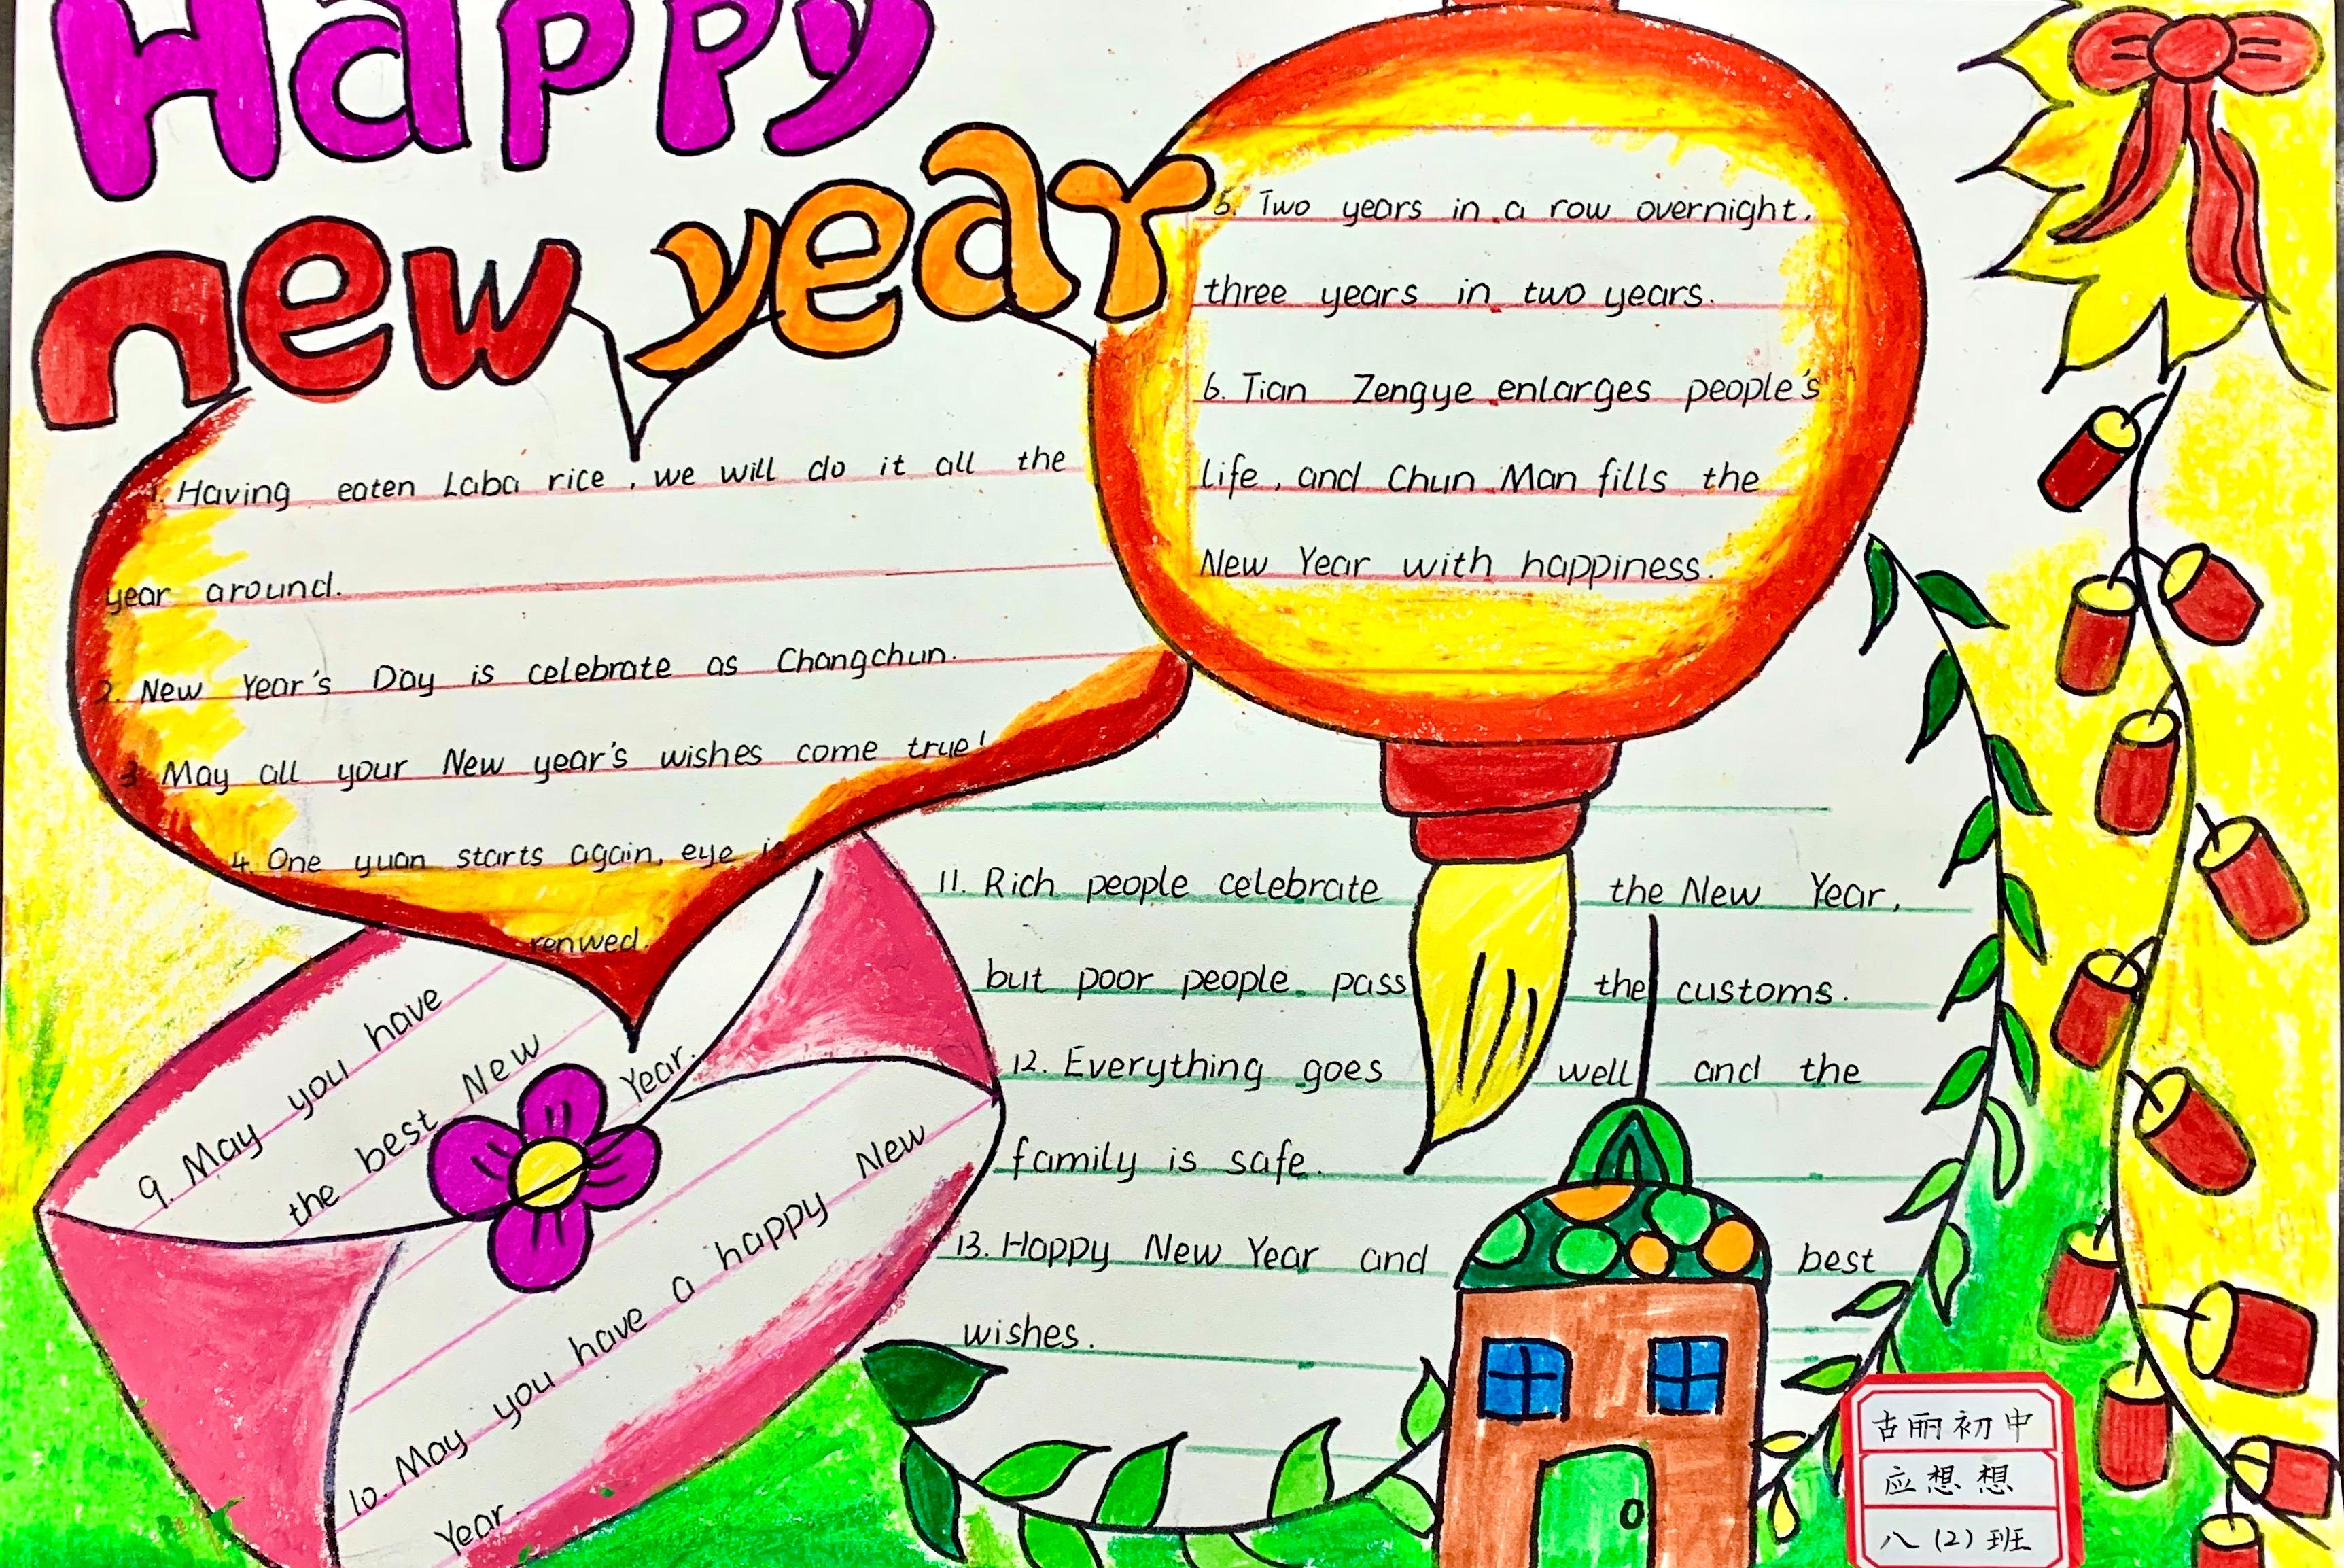 Happy
new year
1. Having eaten Laba rice, we will do it all the
year around.
2. New Year's Day is celebrate as Changchun.
3. May all your New year's wishes come true!
4. One yuan starts again, eye is
renwed.
5. Two years in a row overnight,
three years in two years.
6. Tian Zengye enlarges people's
life, and Chun Man fills the
New Year with happiness.
9. May you have
the best New Year.
10. May you have a happy New
Year.
11. Rich people celebrate the New Year,
but poor people pass the customs.
12. Everything goes well and the
family is safe.
13. Happy New Year and best
wishes.
古丽初中
应想想
八(2)班